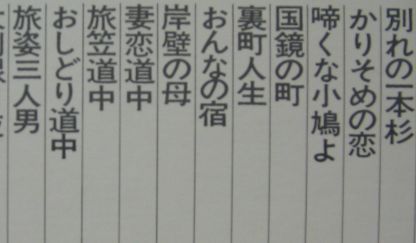 別れの一本杉
かりそめの恋
啼くな小鳩よ
国鏡の町
裏町人生
おんなの宿
岸壁の母
妻恋道中
旅笠道中
おしどり道中
旅姿三人男